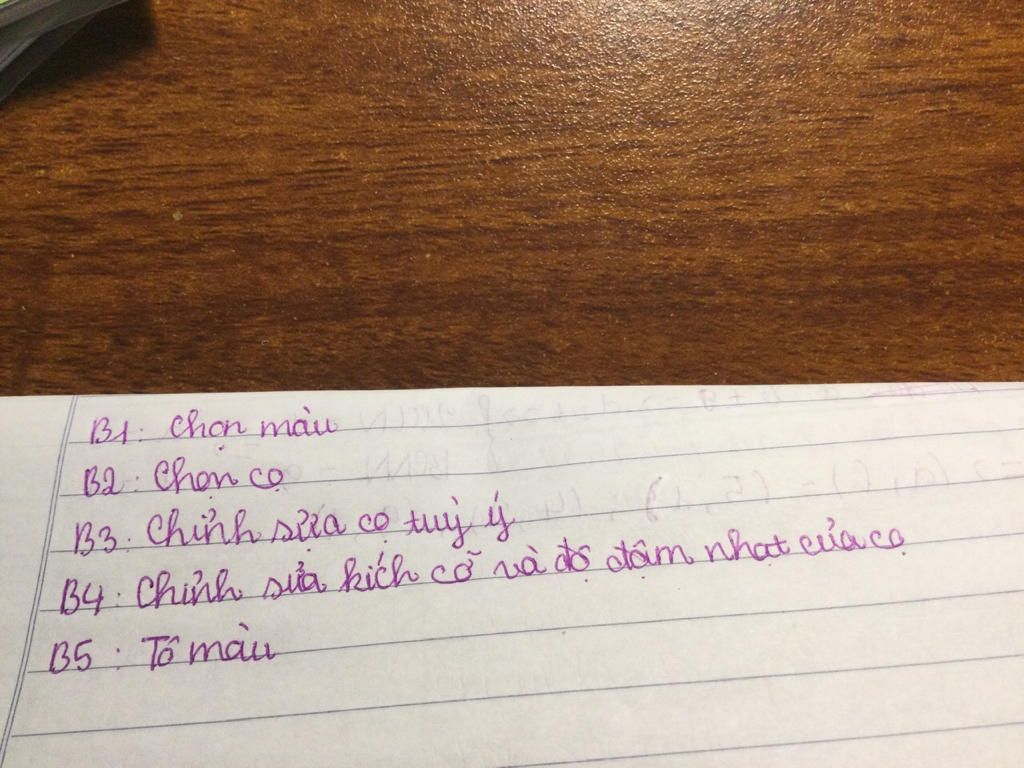 B1: Chọn màu
B2: Chọn cọ
B3: Chỉnh sửa cọ tuỳ ý
B4: Chỉnh sửa kích cỡ và độ đậm nhạt của cọ
B5: Tô màu